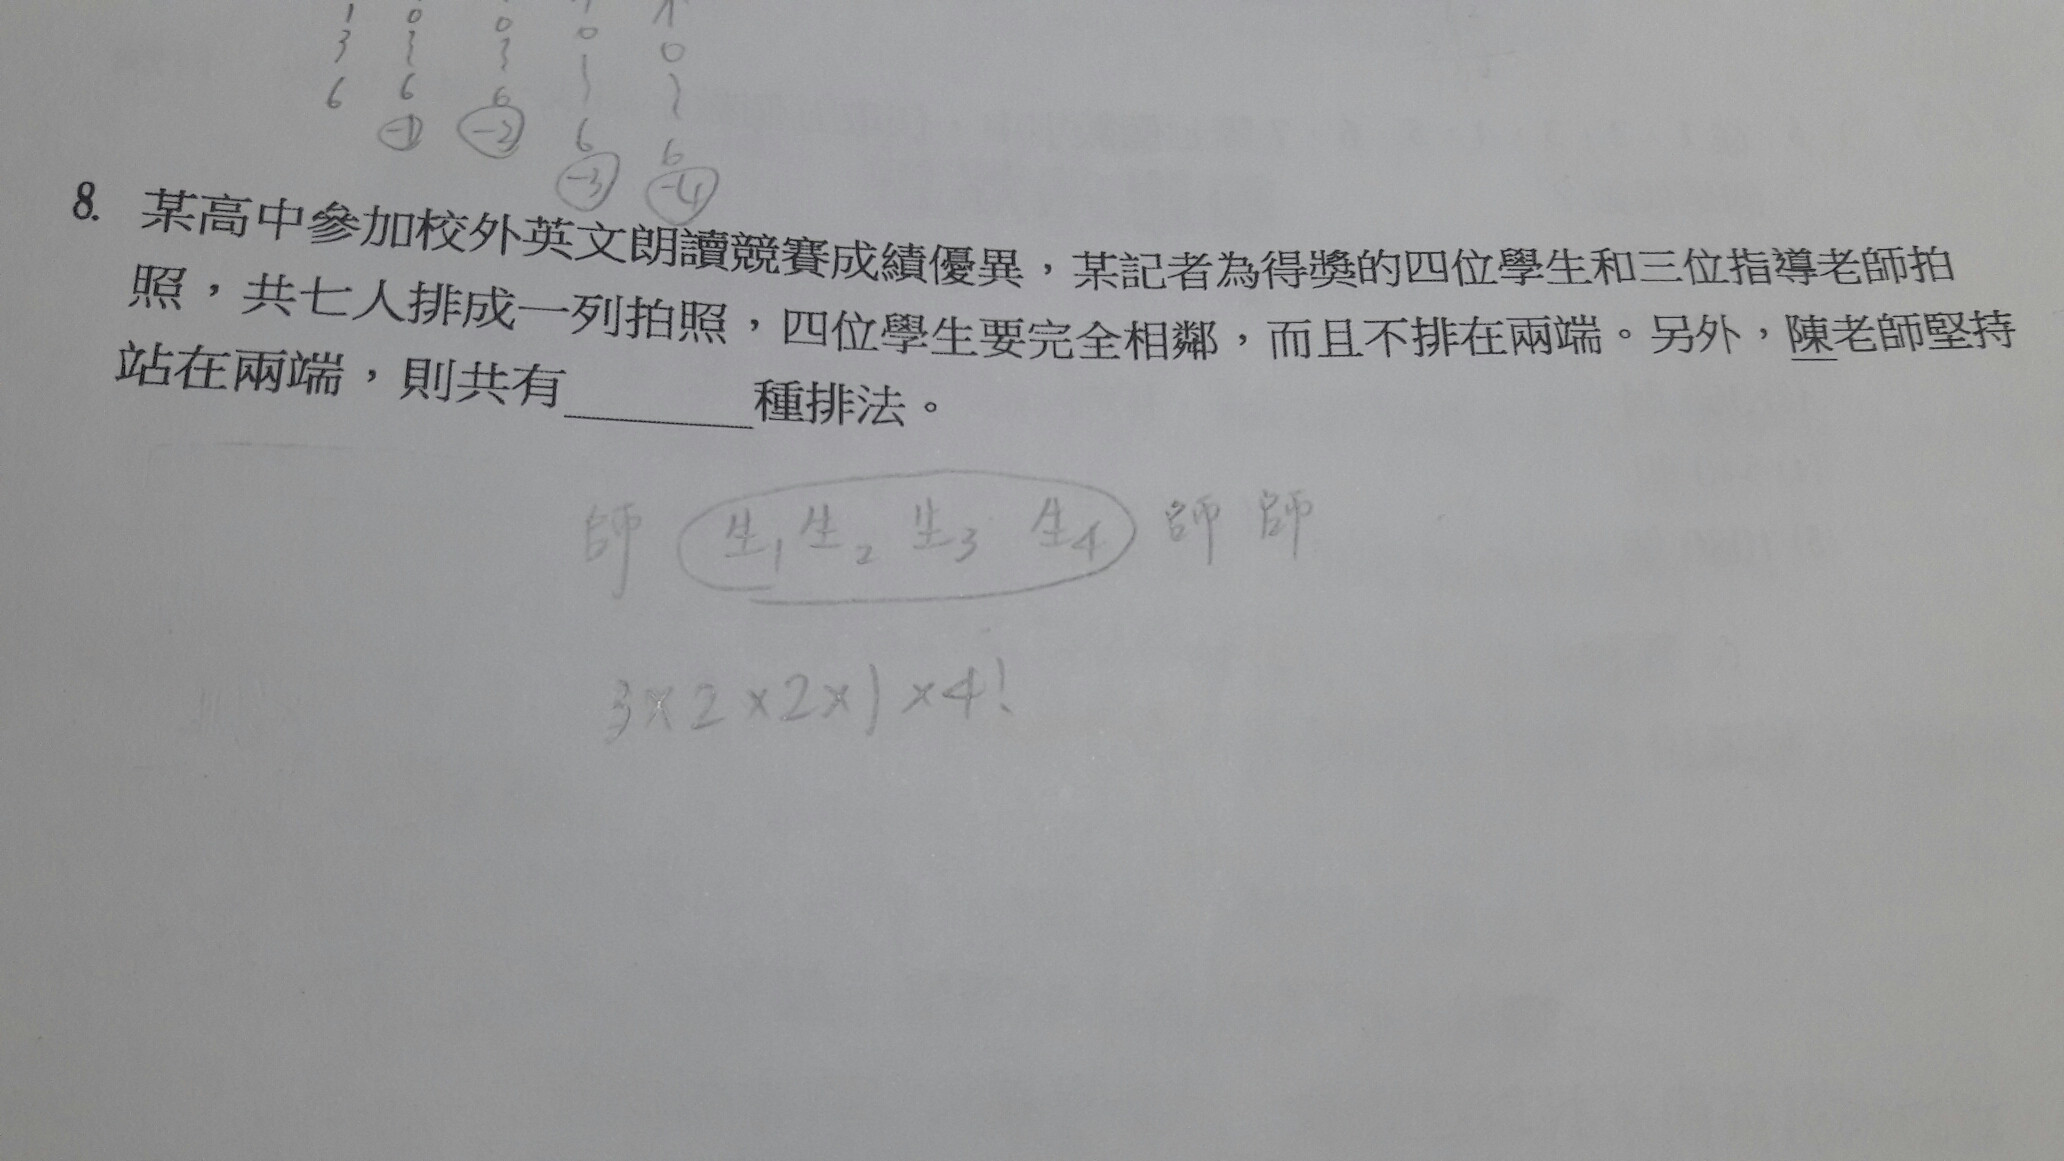 1 0 0 0
3 } } } 0
6 6 6 } }
-1 -2 6 6
-3 -4
8. 某高中參加校外英文朗讀競賽成績優異，某記者為得獎的四位學生和三位指導老師拍
照，共七人排成一列拍照，四位學生要完全相鄰，而且不排在兩端。另外，陳老師堅持
站在兩端，則共有______種排法。
師 生1 生2 生3 生4 師 師
3×2×2×1×4!